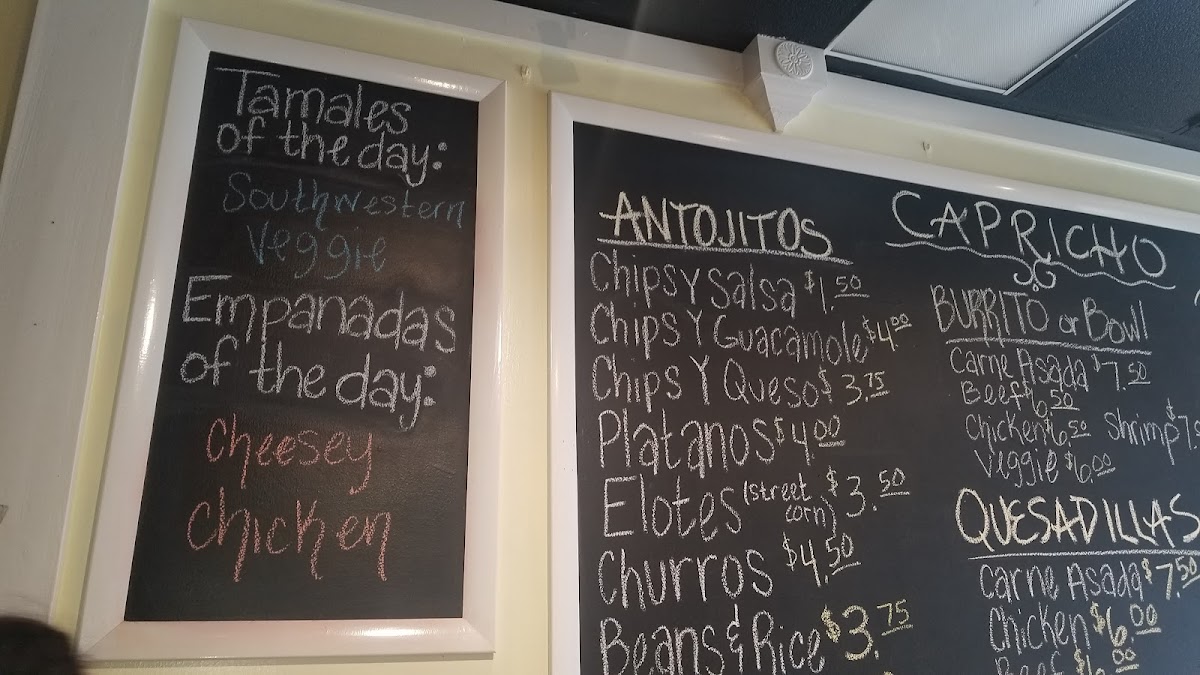 Tamales
of the day:
Southwestern
Veggie
Empanadas
of the day:
Cheesey
Chicken
ANTOJITOS
Chips Y Salsa $1.50
Chips Y Guacamole $4.00
Chips Y Queso $3.75
Platanos $4.00
Elotes (street corn) $3.50
Churros $4.50
Beans & Rice $3.75
CAPRICHO
BURRITO or Bowl
Carne Asada $7.50
Beef $6.50
Chicken $6.50 Shrimp
Veggie $6.00
QUESADILLAS
Carne Asada $7.50
Chicken $6.00
Beef $6.00